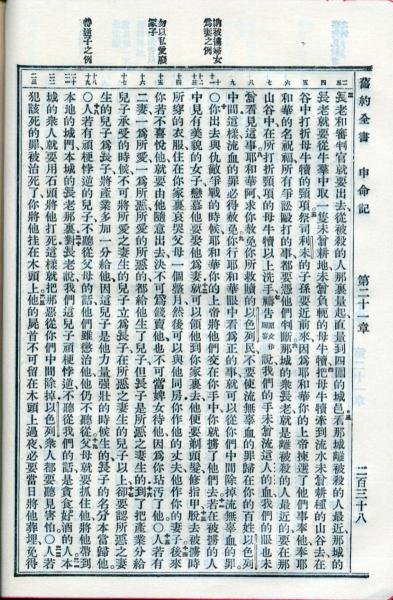 舊約全書　申命記　第二十一章　二百三十八
納被擄婦女
爲妻之例
勿以私愛廢
冢子
待逆子之例
長老和審判官就要出去從被殺的人那裏量起直量到四圍的城邑看那城離被殺的人最近那城的
長老就要從牛羣中取一隻未曾耕地未曾負軛的母牛犢把母牛犢牽到流水未曾耕種的山谷去在
谷中打折母牛犢的頸項祭司利未的子孫要近前來因爲耶和華你的上帝揀選了他們事奉他奉耶
和華的名祝福所有爭訟毆打的事都要憑他們判斷那城的衆長老就是離被殺的人最近的要在那
山谷中在所打折頸項的母牛犢以上洗手禱告說我們的手未曾流這人的血我們的眼也未
曾看見這事耶和華阿求你赦免你所救贖的以色列民不要使流無辜血的罪歸在你的百姓以色列
中間這樣流血的罪必得赦免你行耶和華眼中看爲正的事就可以從你們中間除掉流無辜血的罪
○你出去與仇敵爭戰的時候耶和華你的上帝將他們交在你手中你就擄了他們去若在被擄的人
中見有美貌的女子戀慕他要娶他爲妻就可以領他到你家裏去他便要剃頭髮修指甲脫去被擄時
所穿的衣服住在你家裏哀哭父母一個整月然後可以與他同房你作他的丈夫他作你的妻子後來
你若不喜悅他就要由他隨意出去決不可爲錢賣他也不可當婢女待他因爲你玷污了他○人若有
二妻一爲所愛一爲所惡所愛的所惡的都給他生了兒子但長子是所惡之妻生的到了把產業分給
兒子承受的時候不可將所愛之妻生的兒子立爲長子在所惡之妻生的兒子以上卻要認所惡之妻
生的兒子爲長子將產業多加一分給他因這兒子是他力量強壯的時候生的長子的名分本當歸他
○人若有頑梗悖逆的兒子不聽從父母的話他們雖懲治他他仍不聽從父母就要抓住他將他帶到
本地的城門本城的長老那裏對長老說我們這兒子頑梗悖逆不聽從我們的話是貪食好酒的人本
城的衆人就要用石頭將他打死這樣就把那惡從你們中間除掉以色列衆人都要聽見害怕○人若
犯該死的罪被治死了你將他挂在木頭上他的屍首不可留在木頭上過夜必要當日將他葬埋免得